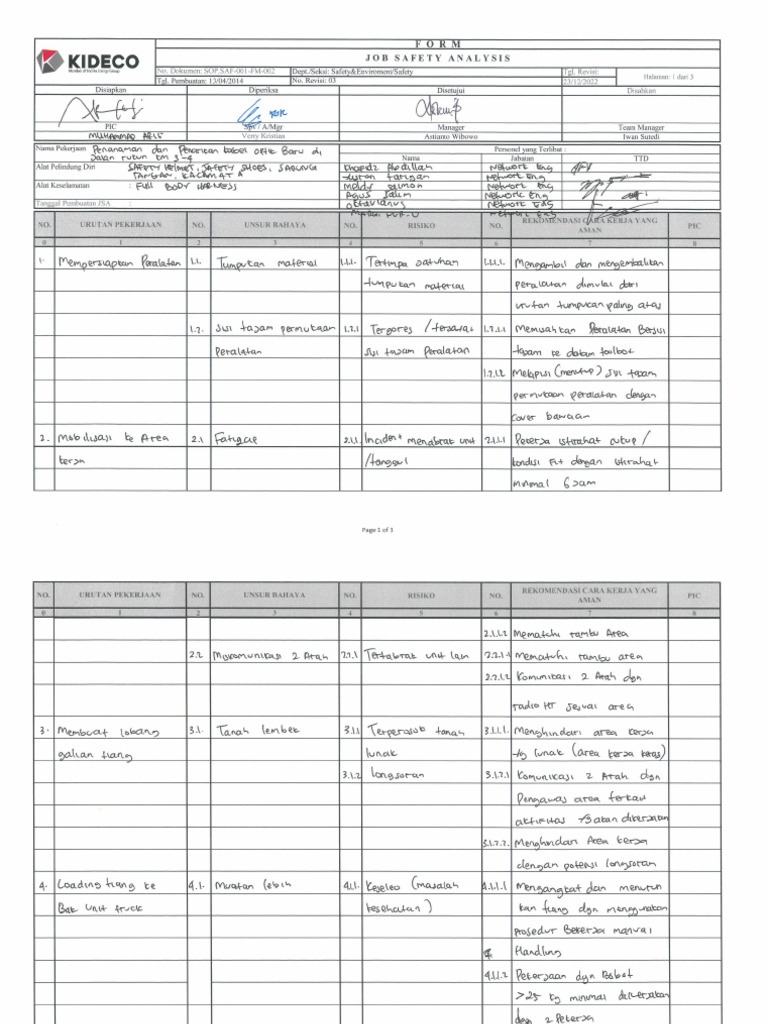 KIDECO
Member of Indika Energy Group
FORM
JOB SAFETY ANALYSIS
No. Dokumen: SOP.SAF-001-FM-002
Dept./Seksi: Safety&Enviroment/Safety
Tgl. Revisi:
Halaman: 1 dari 3
Tgl. Pembuatan: 13/04/2014
No. Revisi: 03
23/12/2022
Disiapkan Diperiksa Disetujui Disahkan
PIC Spv / A/Mgr Manager Team Manager
Verry Kristian Astianto Wibowo Iwan Sutedi
Nama Pekerjaan : Penanaman dan Penarikan kabel Baru di
Jalan
Personel yang Terlibat :
Nama Jabatan TTD
Alat Pelindung Diri : SAFETY HELMET, SAFETY SHOES, SARUNG
TANGAN, KACAMATA
Network Eng
Network Eng
Alat Keselamatan : FULL BODY HARNESS
Network Eng
Agus Salim Network Eng
Tanggal Pembuatan JSA :
Network Eng
NO. URUTAN PEKERJAAN NO. UNSUR BAHAYA NO. RISIKO NO. REKOMENDASI CARA KERJA YANG AMAN PIC
0 1 2 3 4 5 6 7 8
1. Mempersiapkan Peralatan 1.1. Tumpukan material 1.1.1. Tertimpa Jatuhan 1.1.1.1. Mengambil dan mengembalikan
tumpukan material peralatan dimulai dari
urutan tumpukan paling atas
1.2. Sisi tajam permukaan 1.2.1 Tergores / tersayat 1.2.1.1 Memisahkan Peralatan Bersisi
Peralatan sisi tajam Peralatan tajam ke dalam toolbox
1.2.1.2 Melapisi (menutup) sisi tajam
permukaan peralatan dengan
cover bawaan
2. Mobilisasi ke Area 2.1 Fatigue 2.1.1. Incident menabrak unit 2.1.1.1 Pekerja istirahat cukup /
kerja /tanggul kondisi Fit dengan istirahat
minimal 6 Jam
Page 1 of 3
NO. URUTAN PEKERJAAN NO. UNSUR BAHAYA NO. RISIKO NO. REKOMENDASI CARA KERJA YANG AMAN PIC
0 1 2 3 4 5 6 7 8
2.1.1.2 Mematuhi rambu Area
2.2 Miskomunikasi 2 Arah 2.2.1 Tertabrak unit lain 2.2.1.1 Mematuhi rambu area
2.2.1.2 Komunikasi 2 Arah dgn
radio HT sesuai area
3. Membuat lobang 3.1. Tanah lembek 3.1.1 Terperosok tanah 3.1.1.1. Menghindari area kerja
galian tiang lunak yg lunak (area kerja keras)
3.1.2 longsoran 3.1.2.1 Komunikasi 2 Arah dgn
Pengawas area terkait
aktifitas yg akan dikerjakan
3.1.2.2. Menghindari Area kerja
dengan potensi longsoran
4. Loading tiang ke 4.1. Muatan lebih 4.1.1. Keseleo (masalah 4.1.1.1 Mengangkat dan menurun
Bak unit truck kesehatan) kan tiang dgn menggunakan
prosedur Bekerja manual
Handling
4.1.1.2 Pekerjaan dgn Bobot
>25 kg minimal dikerjakan
dgn 2 Pekerja